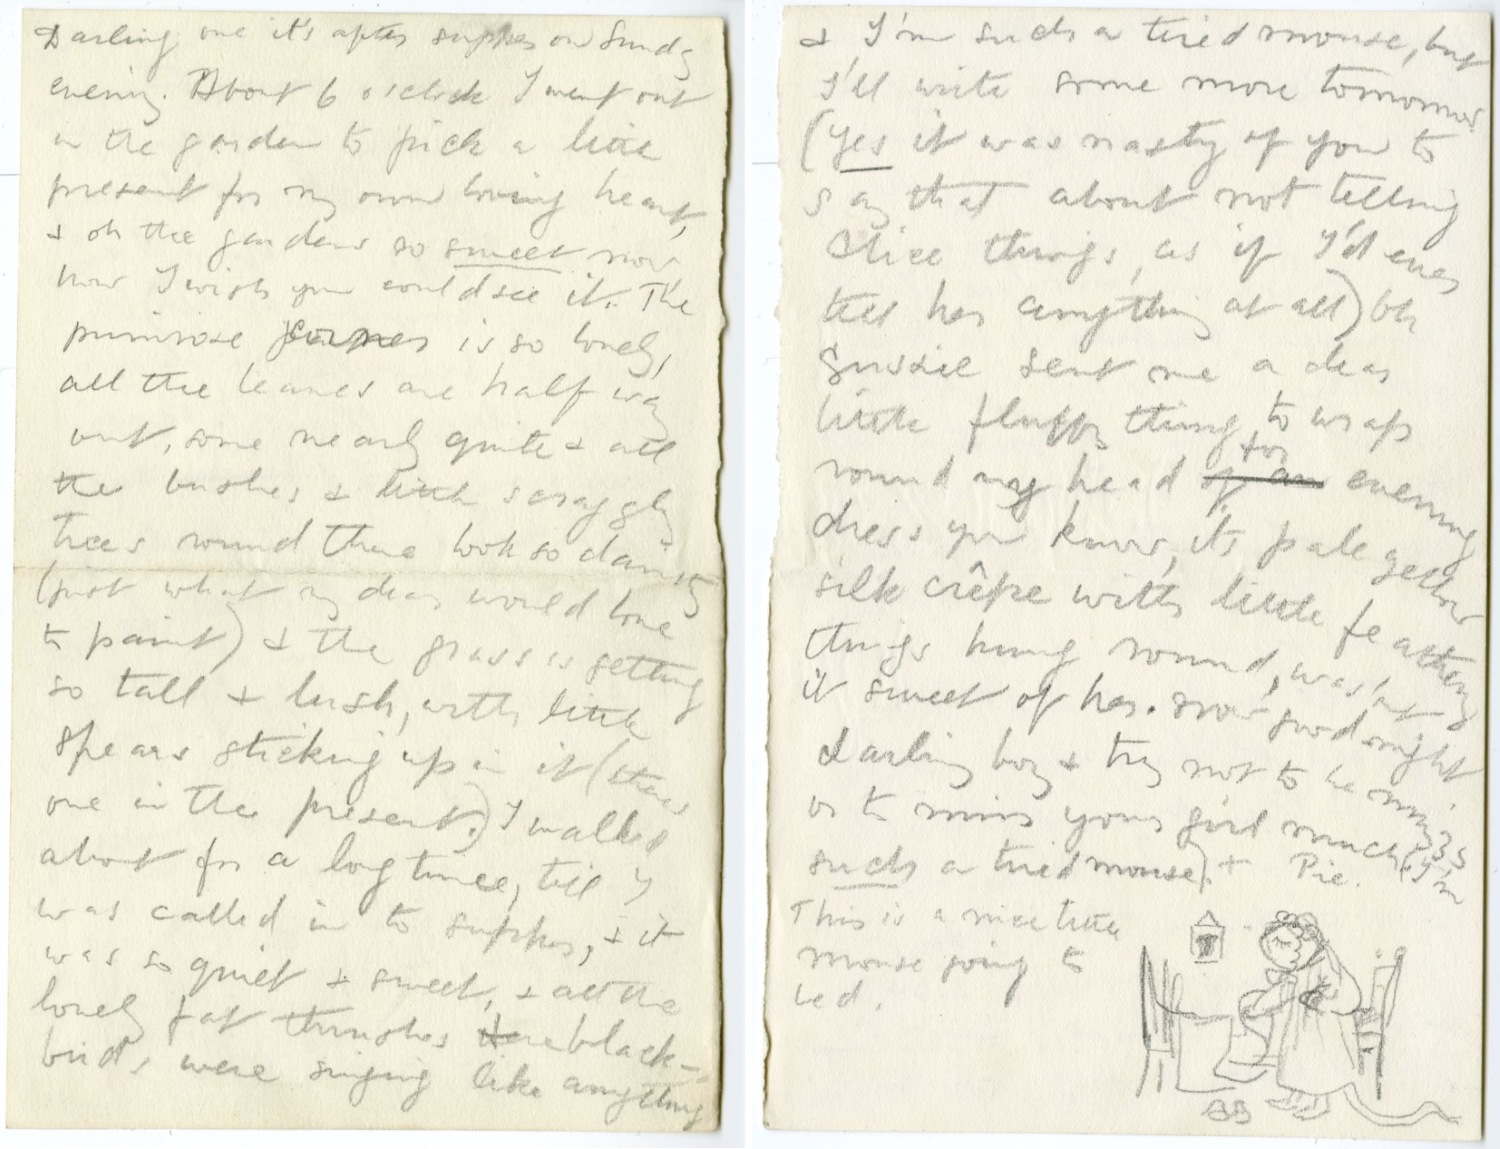 Darling one it's after supper on Sunday
evening. About 6 o'clock I went out
in the garden to pick a little
present for my own loving heart,
& oh the gardens so sweet now
how I wish you could see it. The
primrose corner is so lovely,
all the leaves are half way
out, some nearly quite & all
the bushes & little scraggly
trees round there look so dainty
(just what my dear would love
to paint) & the grass is getting
so tall & lush, with little
spears sticking up in it (theres
one in the present.) I walked
about for a log time, till I
was called in to supper, & it
was so quiet & sweet, & all the
lovely fat thrushes & black-
birds were singing like anything
& I'm such a tired mouse, but
I'll write some more tomorrow
(Yes it was nasty of you to
say that about not telling
Alice things, as if I'd ever
tell her anything at all) Oh
Gussie sent me a dear
little fluffy thing to wrap
round my head for evening
dress you know, it's pale yellow
silk crêpe with little feathery
things hung round, wasn't
it sweet of her. Now good night
darling boy & try not to be
or to miss your girl much (I'm
such a tired mouse). + Pie.
This is a nice little
mouse going to
bed.